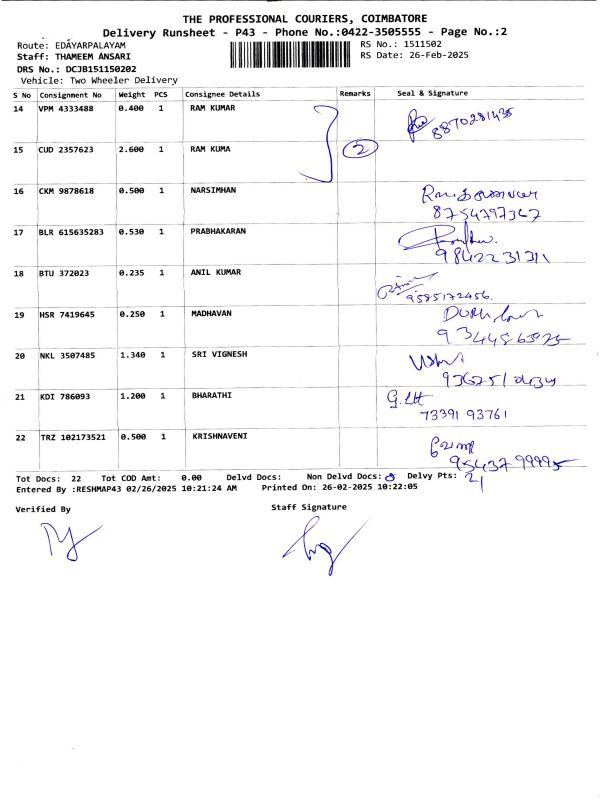 THE PROFESSIONAL COURIERS, COIMBATORE
Delivery Runsheet - P43 - Phone No.:0422-3505555 - Page No.:2
Route: EDAYARPALAYAM
RS No.: 1511502
Staff: THAMEEM ANSARI
RS Date: 26-Feb-2025
DRS No.: DCJB151150202
Vehicle: Two Wheeler Delivery
S No Consignment No Weight PCS Consignee Details Remarks Seal & Signature
14 VPM 4333488 0.400 1 RAM KUMAR
8870281435
15 CUD 2357623 2.600 1 RAM KUMA 2
16 CKM 9878618 0.500 1 NARSIMHAN
8754797367
17 BLR 615635283 0.530 1 PRABHAKARAN
9842231311
18 BTU 372023 0.235 1 ANIL KUMAR
9585172456
19 HSR 7419645 0.250 1 MADHAVAN
20 NKL 3507485 1.340 1 SRI VIGNESH
21 KDI 786093 1.200 1 BHARATHI
73391 93761
22 TRZ 102173521 0.500 1 KRISHNAVENI
95437 99995
Tot Docs: 22 Tot COD Amt: 0.00 Delvd Docs: Non Delvd Docs: Delvy Pts: 21
Entered By :RESHMAP43 02/26/2025 10:21:24 AM Printed On: 26-02-2025 10:22:05
Verified By Staff Signature